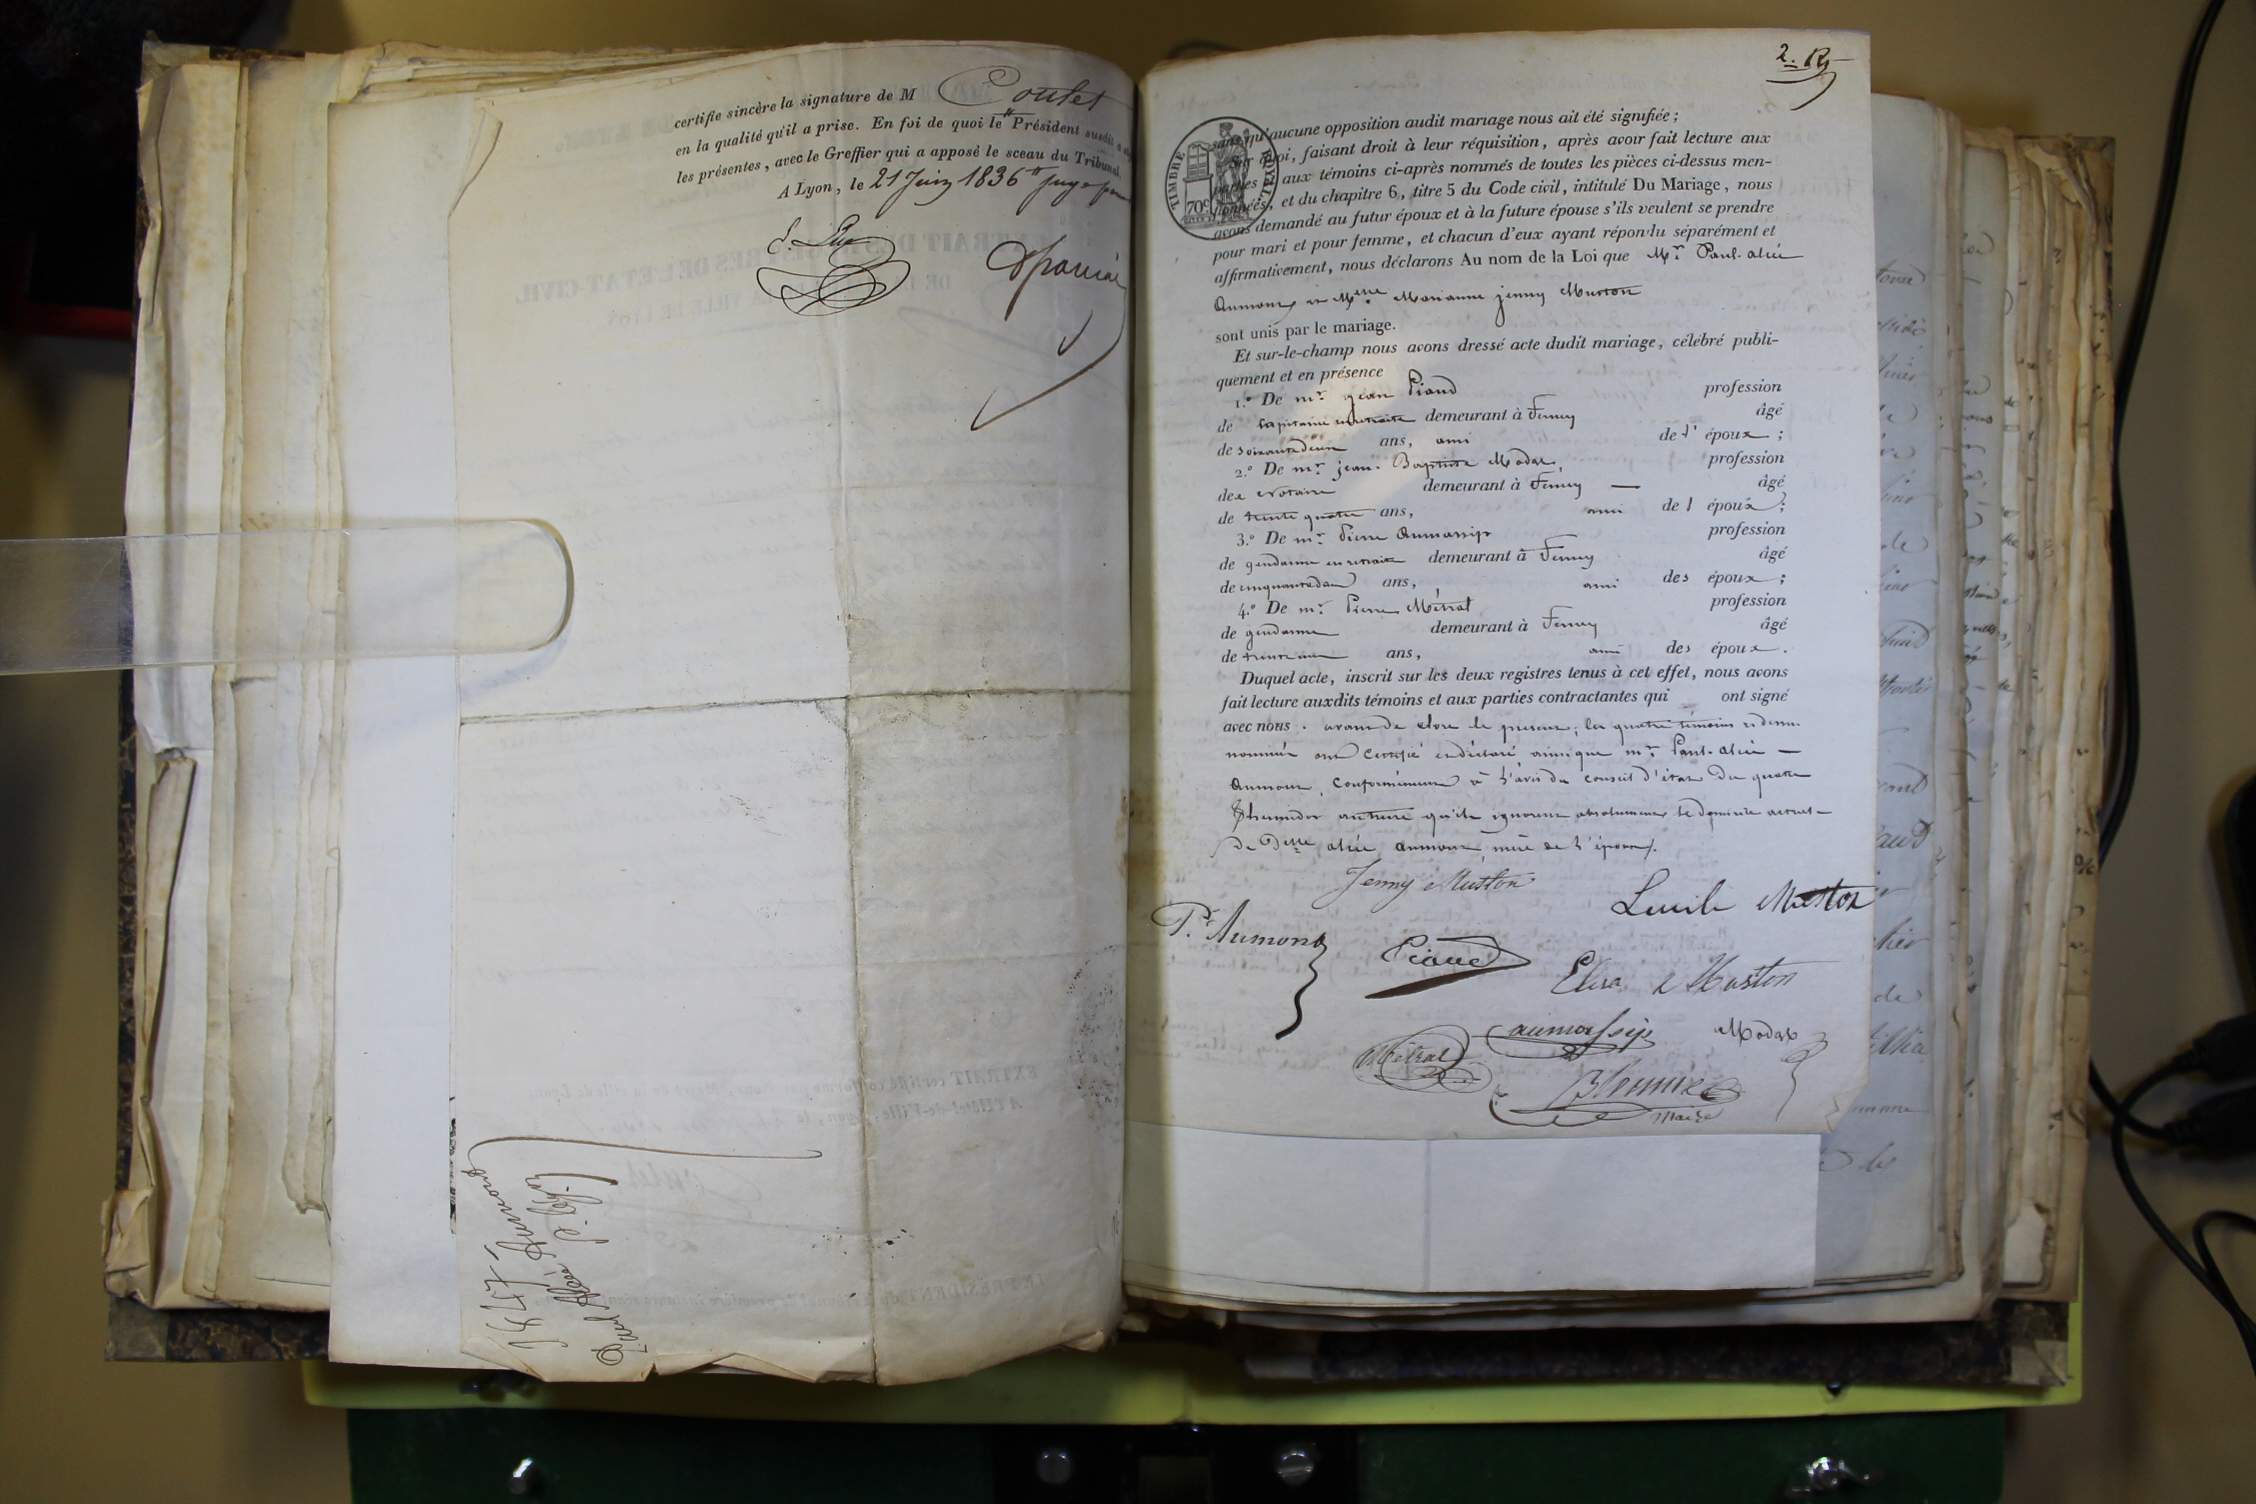 certifie sincère la signature de M Coulet
en la qualité qu'il a prise. En foi de quoi le Président susdit a
les présentes, avec le Greffier qui a apposé le sceau du Tribunal.
A Lyon, le 21 Juin 1836
1817
Paul Alexi Aumond
2.
TIMBRE ROYAL
70c
sans qu'aucune opposition audit mariage nous ait été signifiée ;
Sur quoi, faisant droit à leur réquisition, après avoir fait lecture aux
parties et aux témoins ci-après nommés de toutes les pièces ci-dessus men-
tionnées, et du chapitre 6, titre 5 du Code civil, intitulé Du Mariage, nous
avons demandé au futur époux et à la future épouse s'ils veulent se prendre
pour mari et pour femme, et chacun d'eux ayant répondu séparément et
affirmativement, nous déclarons Au nom de la Loi que Mr. Paul-alexi
Aumond et Melle Marianne jenny Muston
sont unis par le mariage.
Et sur-le-champ nous avons dressé acte dudit mariage, célébré publi-
quement et en présence
1.° De mr. jean Piaud profession
de capitaine en retraite demeurant à Ferney âgé
de soixante deux ans, ami de l' époux ;
2.° De mr. jean-Baptiste Modas, profession
de notaire demeurant à Ferney — âgé
de trente quatre ans, ami de l époux ;
3.° De mr. Pierre Aumassip profession
de gendarme en retraite demeurant à Ferney âgé
de cinquante deux ans, ami des époux ;
4.° De mr. Pierre Métral profession
de gendarme demeurant à Ferney âgé
de trente ans, ami des époux .
Duquel acte, inscrit sur les deux registres tenus à cet effet, nous avons
fait lecture auxdits témoins et aux parties contractantes qui ont signé
avec nous . avant de clore le présent, les quatre témoins ci dessus
nommés ont certifié et déclaré, ainsi que mr. Paul-alexi —
Aumond, conformément à l'avis du conseil d'état du quatre
thermidor an treize qu'ils ignorent absolument le domicile actuel
de Delle alexi aumond, mère de l'époux.
Jenny Muston
Lucile Muston
P. Aumond
Piaud
Elisa Muston
aumassip
Modas
Métral
Maire